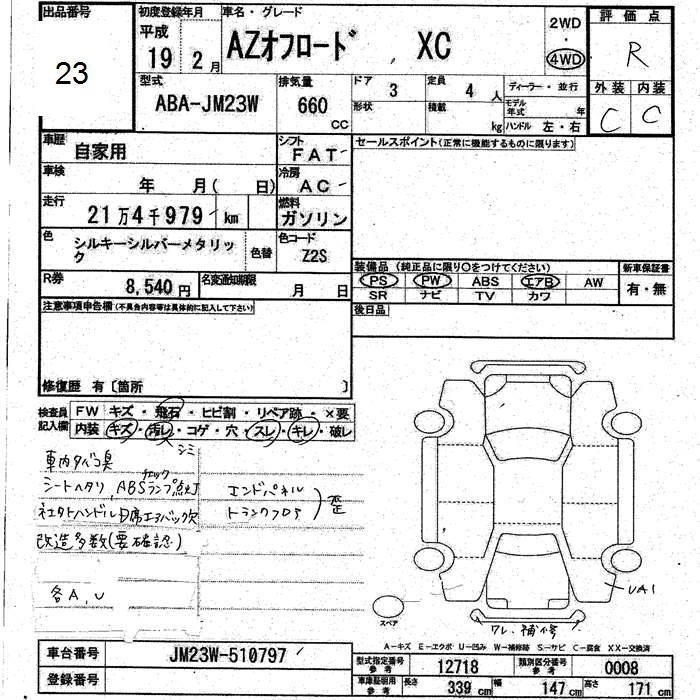 出品番号
23
初度登録年月
平成
19年 2月
車名・グレード
AZオフロード XC
2WD
4WD
評価点
R
外装 内装
C C
型式
ABA-JM23W
排気量
660
CC
ドア 3
形状
定員 4 人
積載 kg
ディーラー・並行
モデル年式 年
ハンドル 左・右
車歴
自家用
シフト
FAT
車検
年 月( 日)
冷房
AC
走行
21万4千979 km
燃料
ガソリン
色
シルキーシルバーメタリック
色替
色コード
Z2S
R券
8,540円
名変通知期限
月 日
セールスポイント(正常に機能するものに限ります)
装備品 (純正品に限り○をつけてください)
PS PW ABS エアB AW
SR ナビ TV カワ
新車保証書
有・無
後日品
注意事項申告欄(不具合内容等は具体的に記入して下さい)
修復歴 有〔箇所 〕
検査員
記入欄
FW キズ・飛石・ヒビ割・リペア跡・×要
内装 キズ・汚レ・コゲ・穴・スレ・キレ・破レ
シミ
車内タバコ臭
チェック
シートヘタリ、ABSランプ点灯
社外ハンドル D席エアバック欠
改造多数(要確認)
エンドパネル
トランクフロア
歪
各A、U
UA1
スペア
ワレ、補修
A－キズ E－エクボ U－凹み W－補修跡 S－サビ C－腐食 XX－交換済
車台番号
JM23W-510797
登録番号
型式指定番号
参考
12718
類別区分番号
参考
0008
車庫証明用
参考
長さ 339 cm
幅 147 cm
高さ 171 cm